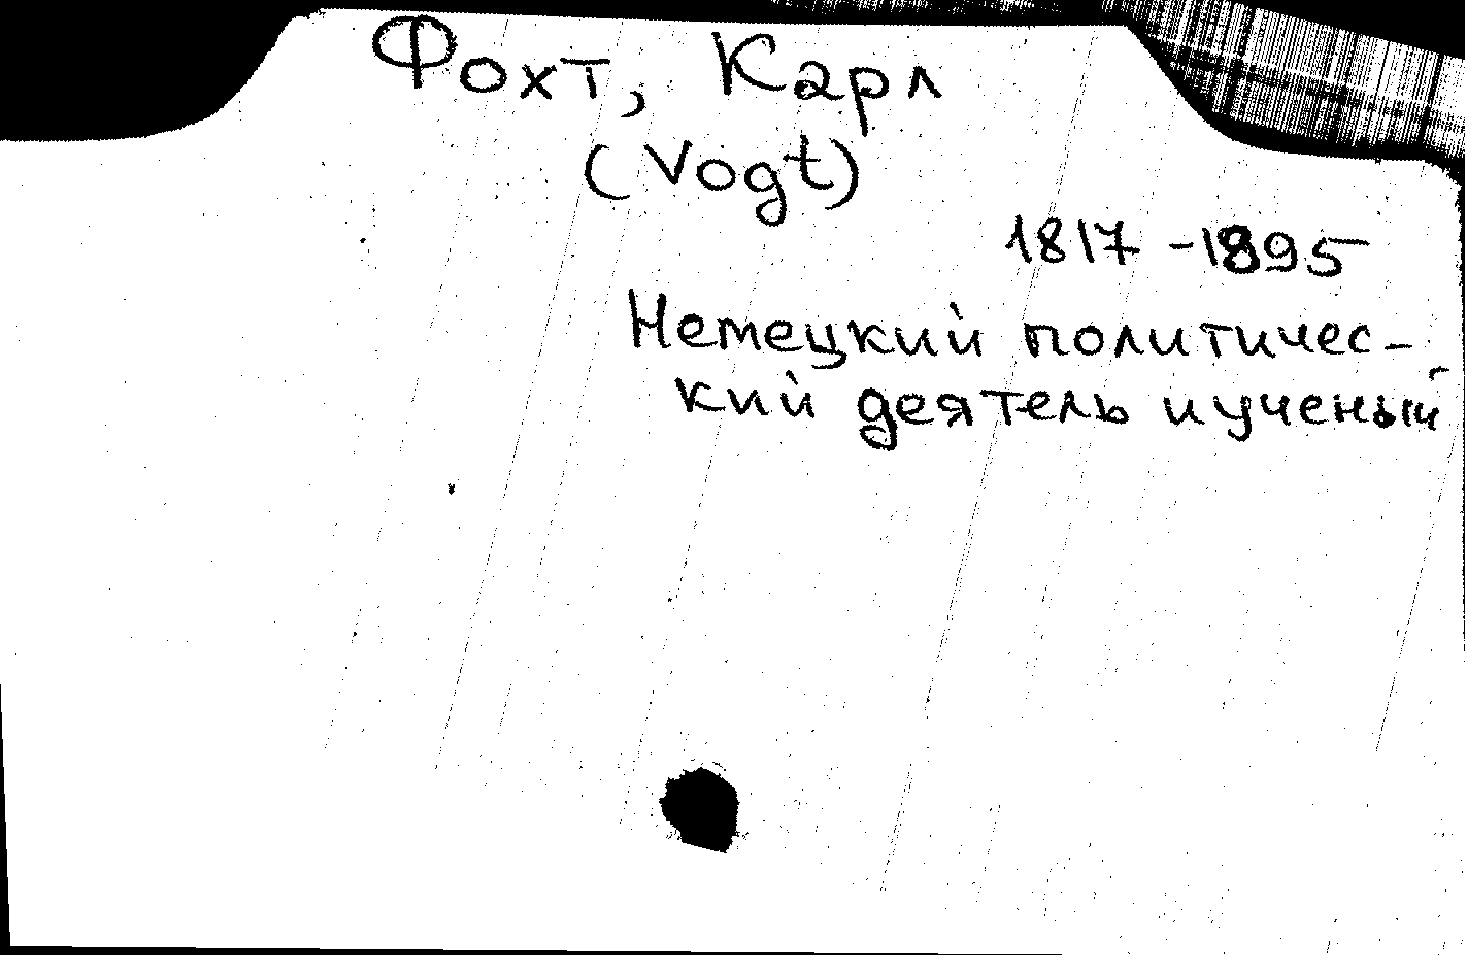 Фохт, Карл
(Vogt)
1817 - 1895
Немецкий политичес-
кий деятель и ученый